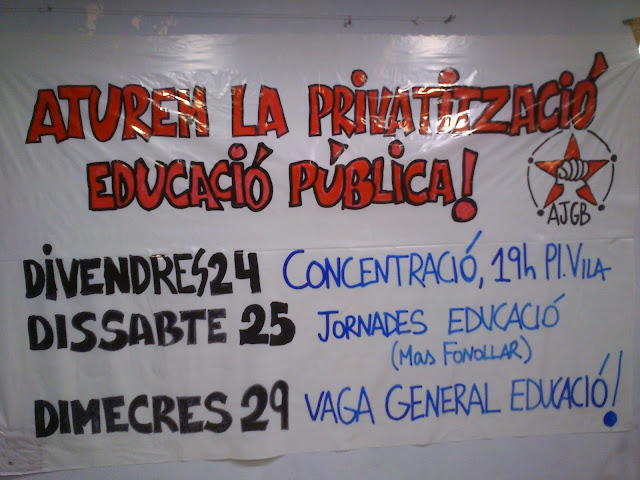 ATUREM LA PRIVATITZACIÓ
EDUCACIÓ PÚBLICA!
AJGB
DIVENDRES 24 CONCENTRACIÓ, 19h Pl. VILA
DISSABTE 25 JORNADES EDUCACIÓ
(Mas Fonollar)
DIMECRES 29 VAGA GENERAL EDUCACIÓ!